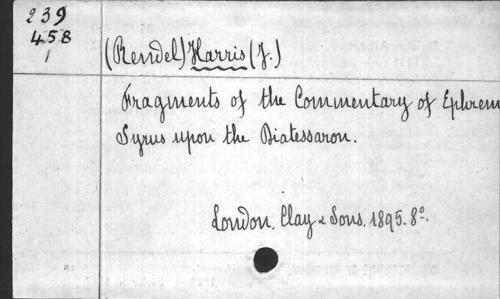 239
458
1
(Rendel) Harris (J.)
Fragments of the Commentary of Ephrem
Syrus upon the Diatessaron.
London. Clay & Sons. 1895. 8°.